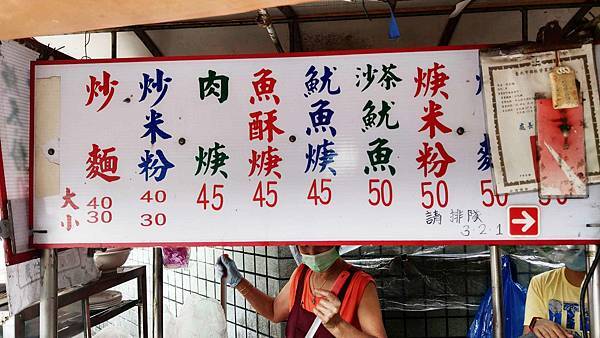 炒麵
大 40
小 30
炒米粉
40
30
肉焿
45
魚酥焿
45
魷魚焿
45
沙茶魷魚
50
焿米粉
50
麵
50
50
請排隊
3 2 1
處長